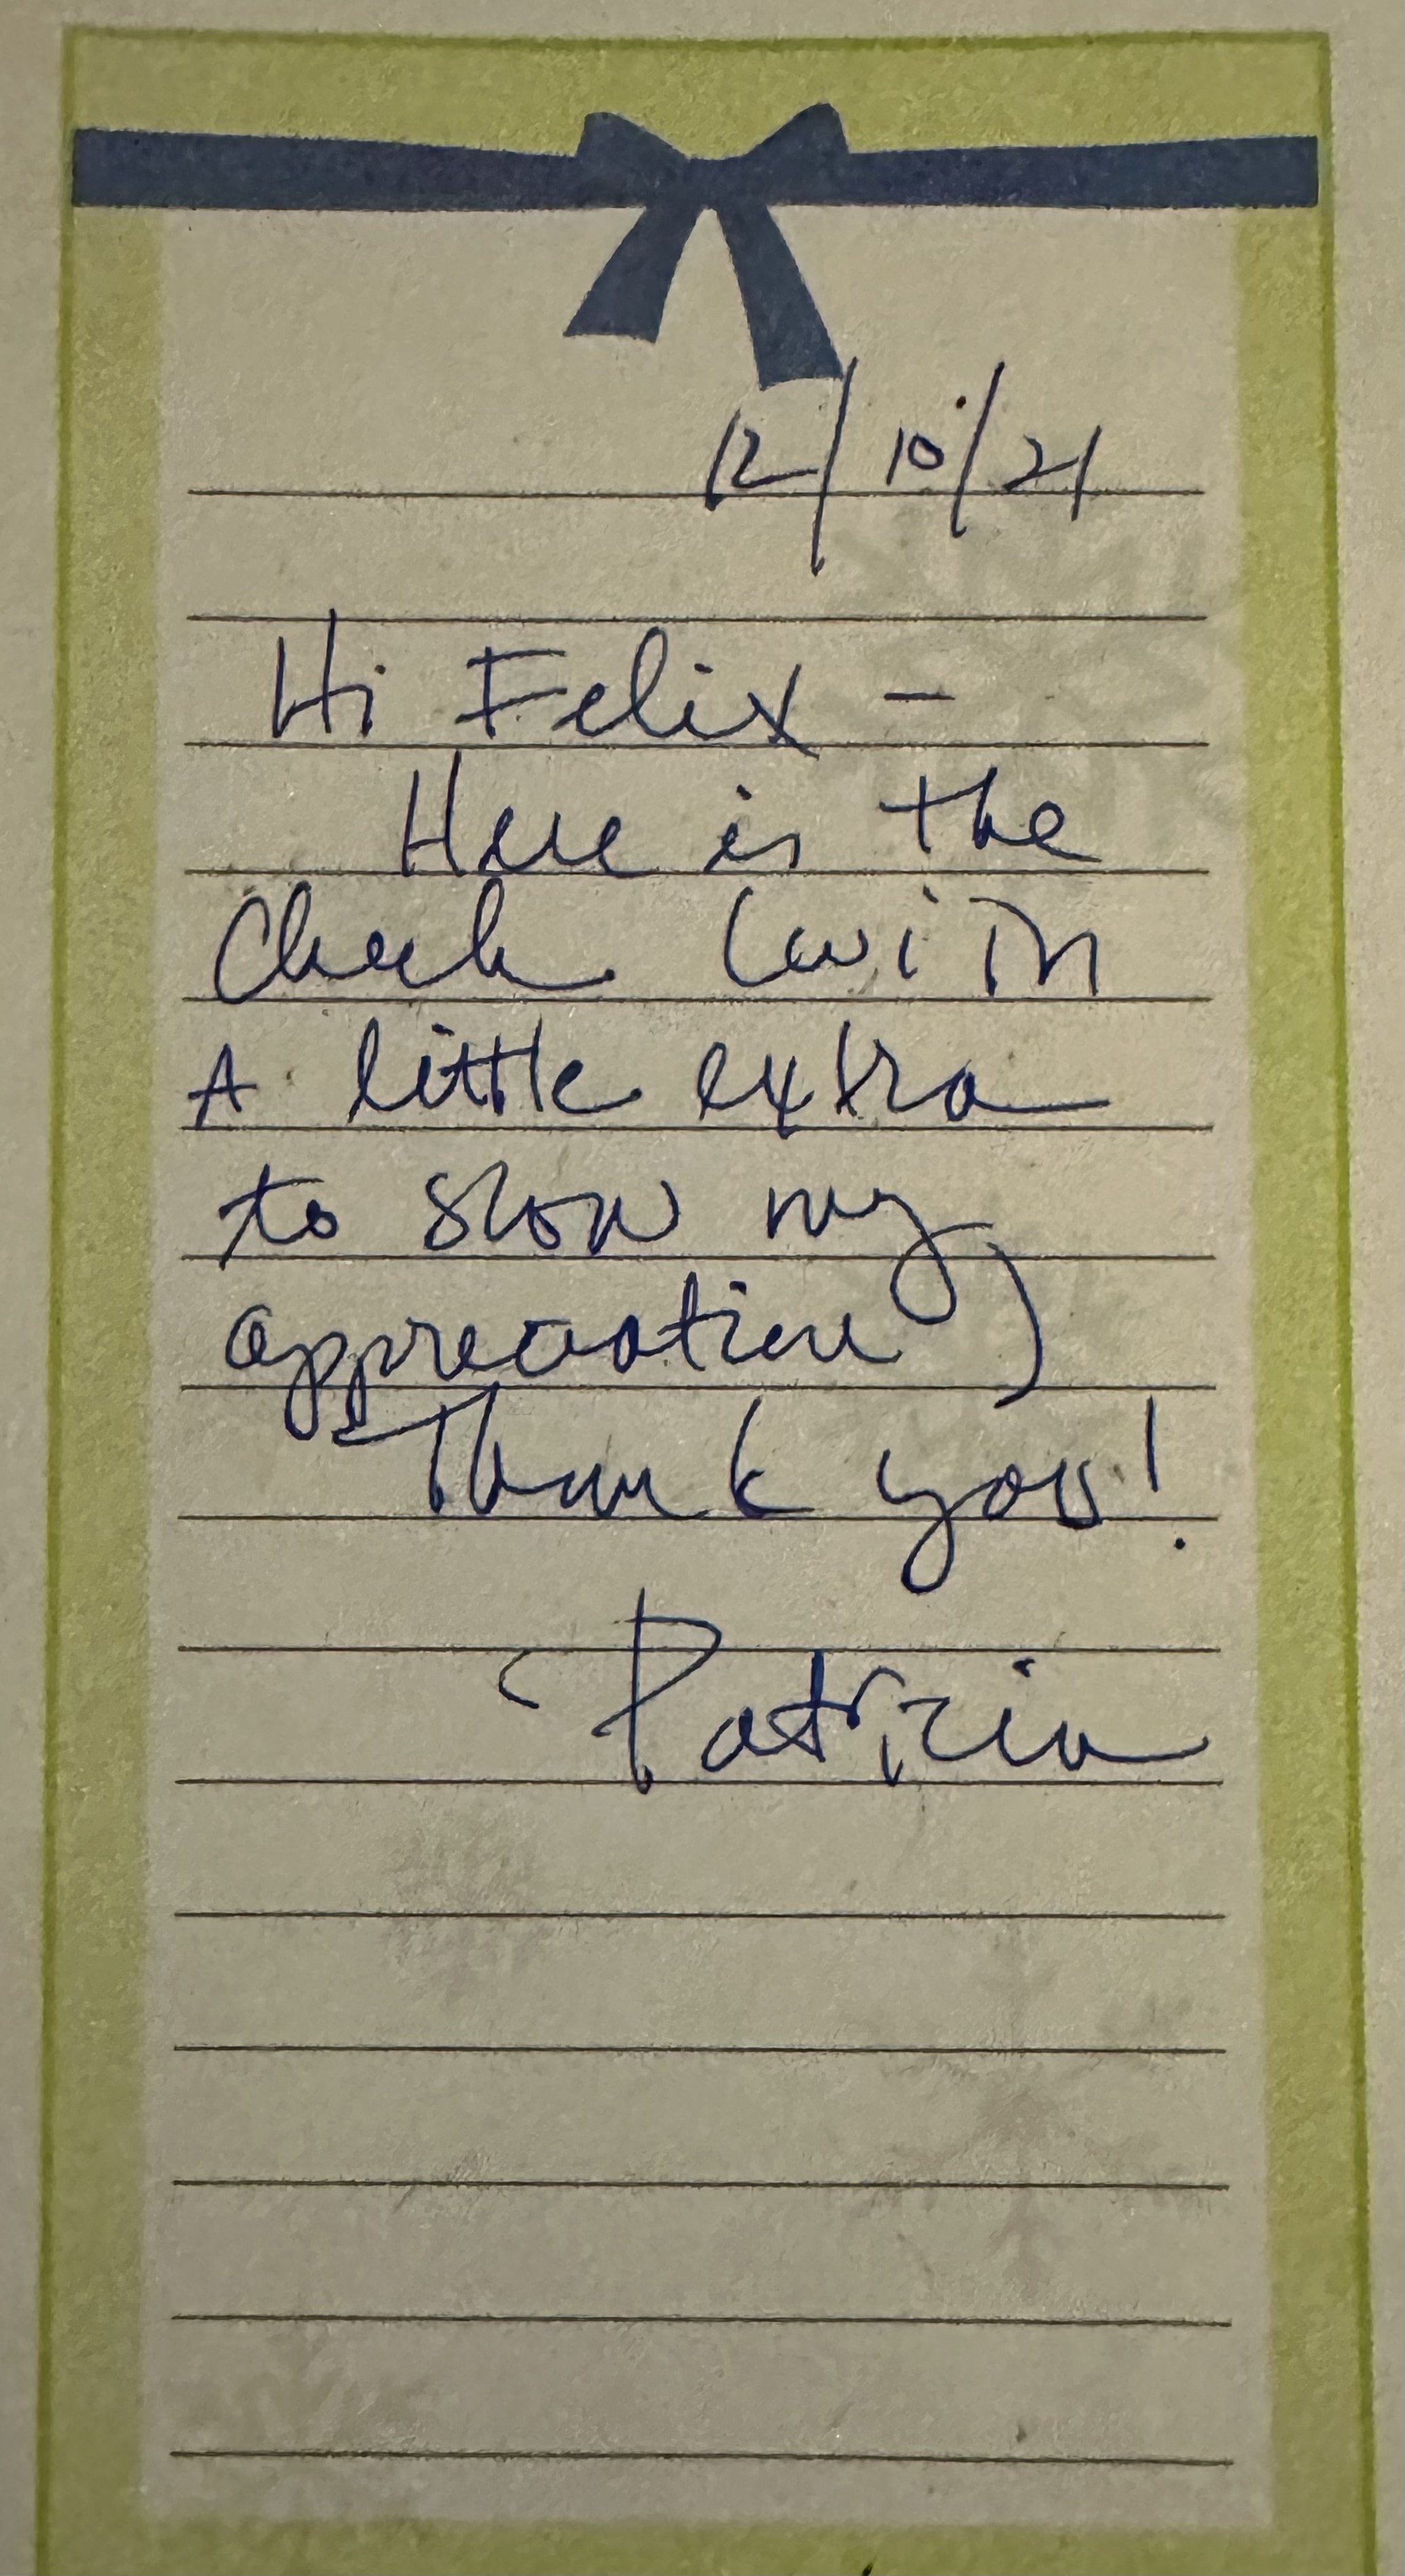 12/10/21
Hi Felix -
Here is the
Check (with
A little extra
to show my
appreciation)
Thank you!
Patricia